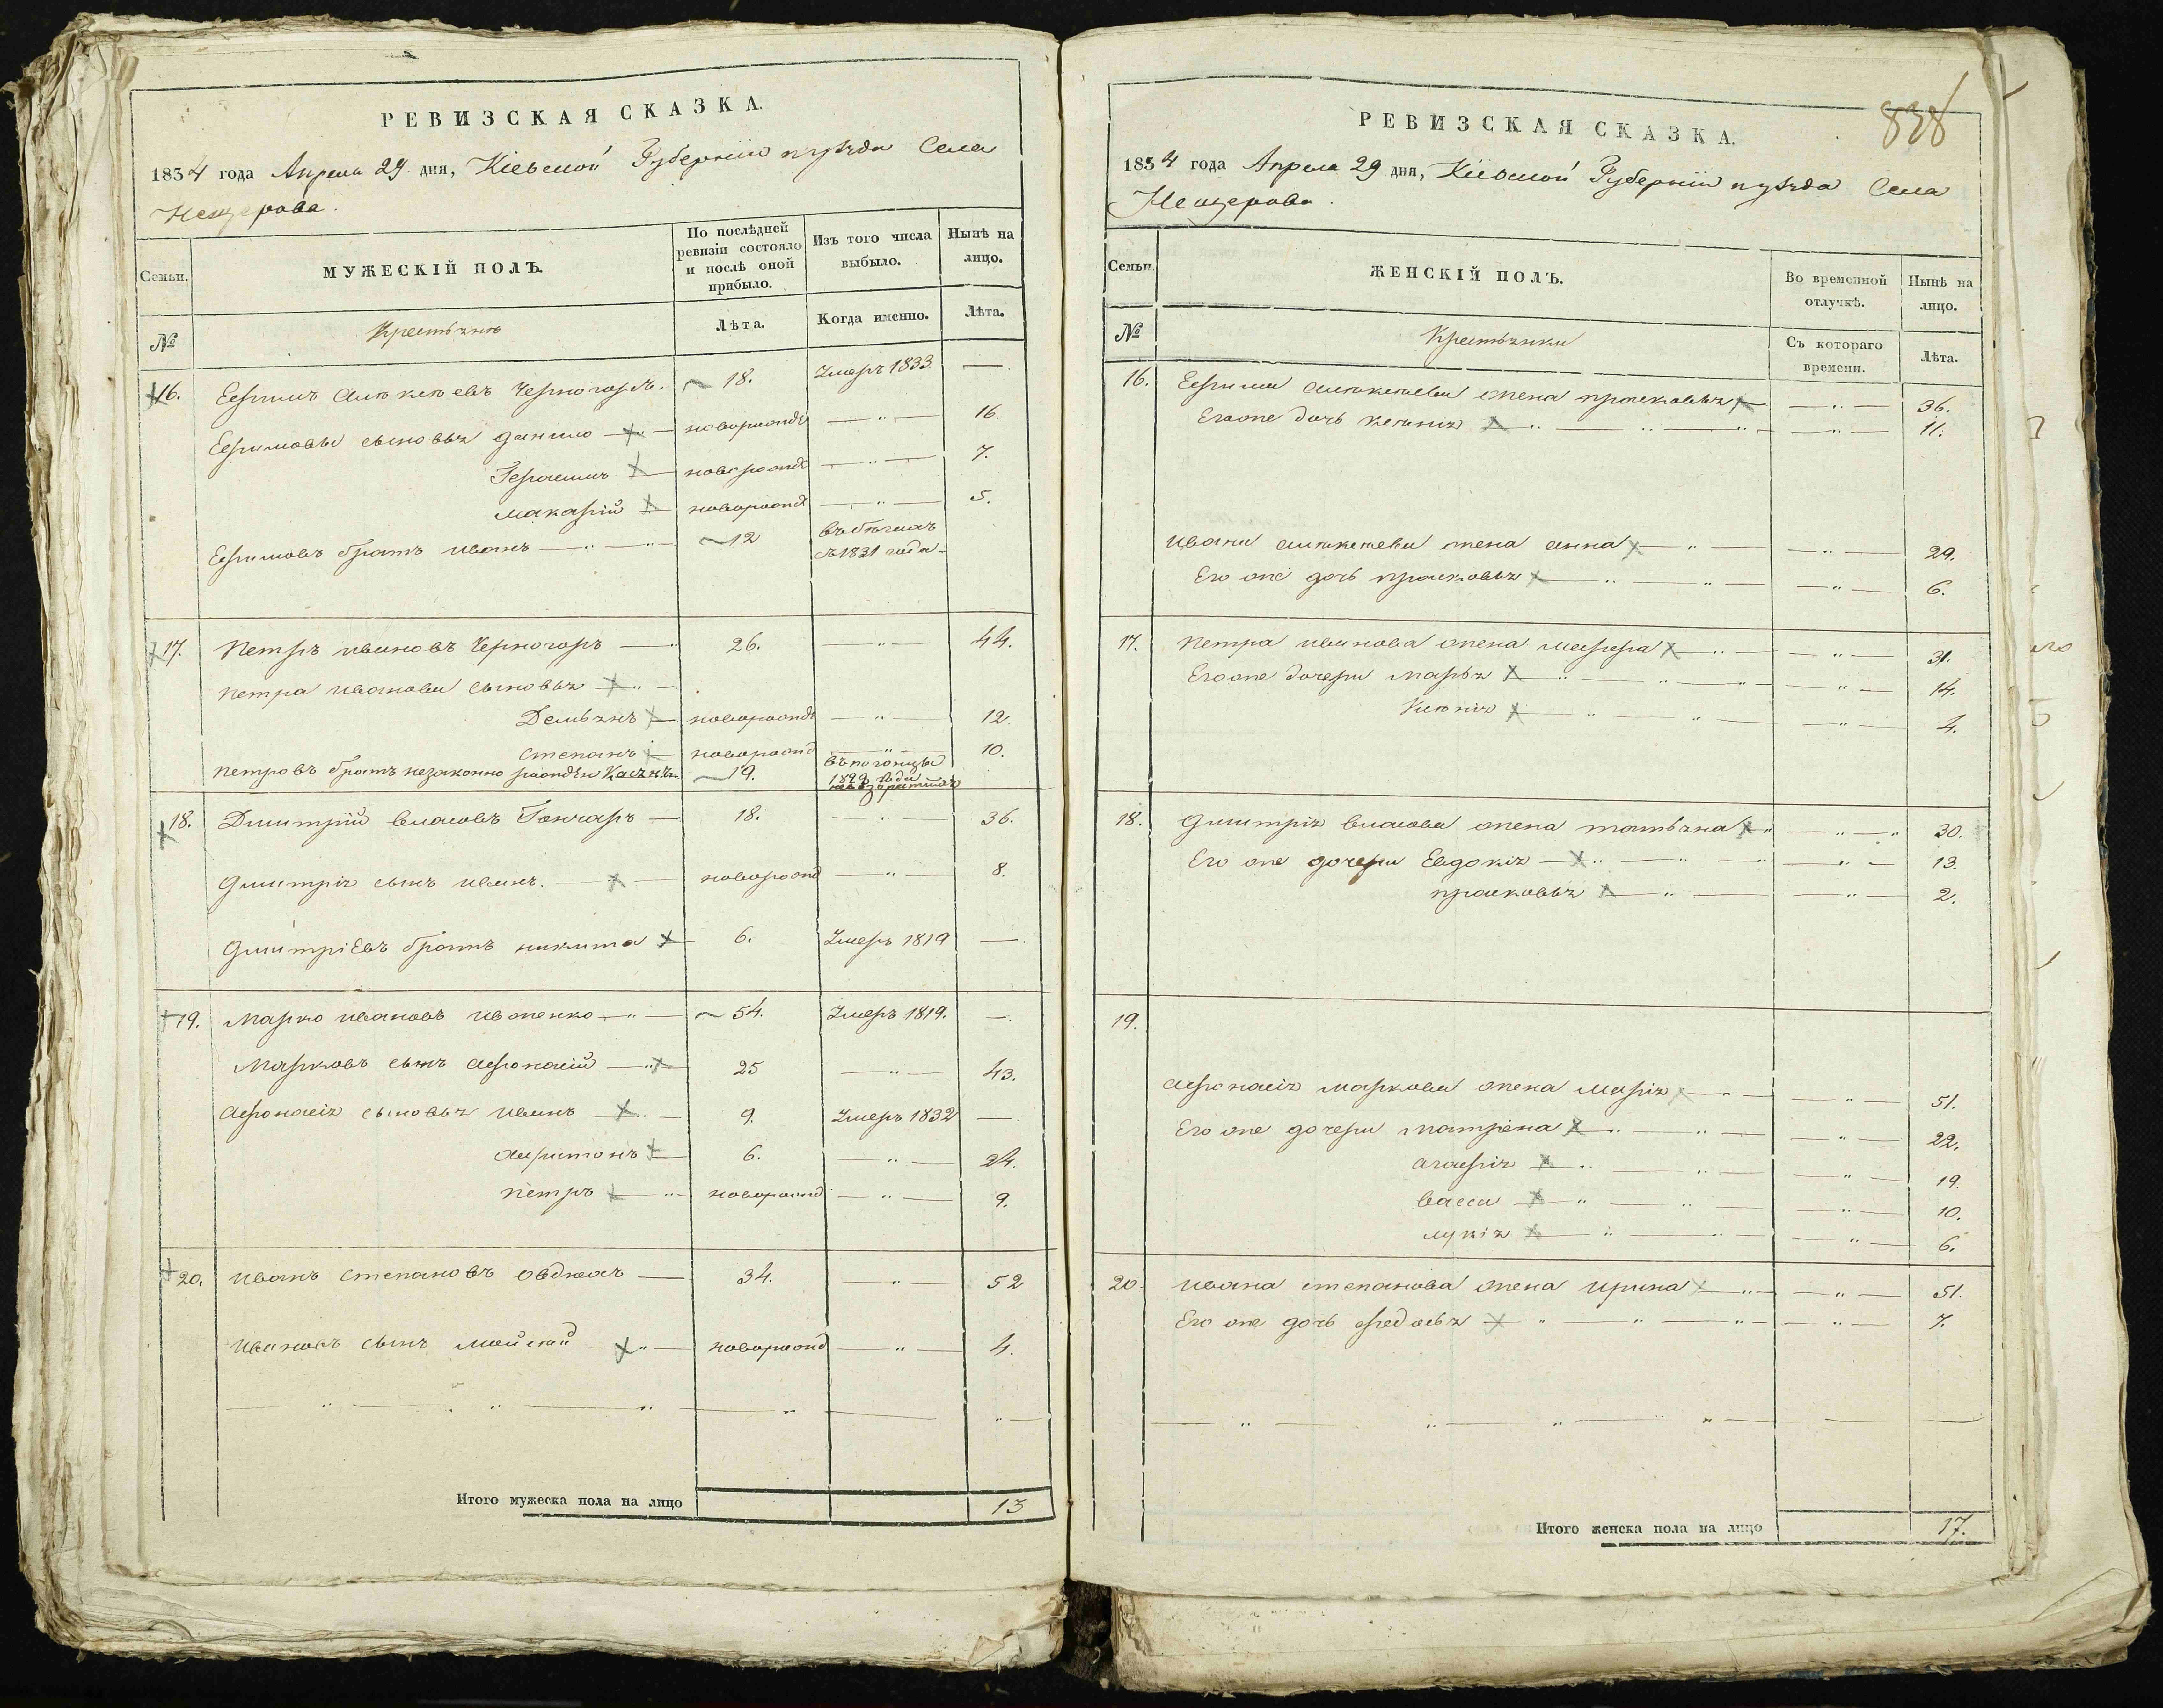 РЕВИЗСКАЯ СКАЗКА.
1834 года Апреля 29 дня, Кіевской Губерніи и уѣзда Села
Нещерова.
Семьи.
МУЖЕСКІЙ ПОЛЪ.
По послѣдней ревизіи состояло и послѣ оной прибыло.
Изъ того числа выбыло.
Нынѣ на лицо.
№
Крестьяне
Лѣта.
Когда именно.
Лѣта.
16. Ефимъ Алексѣевъ Черногоръ. 18. Умеръ 1833. —
Ефимовы сыновья Данило новорожд — " — 16.
Герасимъ новорожд — " — 7.
Макарій новорожд — " — 5.
Ефимовъ братъ Иванъ — " — 12 въ бѣгахъ
съ 1831 года
17. Петръ Ивановъ Черногоръ — 26. — " — 44.
Петра Иванова сыновья
Демьянъ новорожд — " — 12.
Степанъ новорожд — " — 10.
Петровъ братъ незаконно рожден 19.
18. Дмитрій Власовъ Гончаръ — 18. — " — 36.
Дмитрія сынъ Иванъ. новорожд — " — 8.
Дмитріевъ братъ Никита 6. Умеръ 1819 —
19. Марко Ивановъ Ивженко — " — 54. Умеръ 1819. —
Марковъ сынъ Афонасій 25 — " — 43.
Афонасія сыновья Иванъ 9. Умеръ 1832 —
Харитонъ 6. — " — 24.
Петръ новорожд — " — 9.
20. Иванъ Степановъ 34. — " — 52
Ивановъ сынъ Мойсей новорожд — " — 4.
Итого мужеска пола на лицо 13
838
РЕВИЗСКАЯ СКАЗКА.
1834 года Апреля 29 дня, Кіевской Губерніи и уѣзда Села
Нещерова.
Семьи.
ЖЕНСКІЙ ПОЛЪ.
Во временной отлучкѣ.
Нынѣ на лицо.
№
Крестьянки
Съ котораго времени.
Лѣта.
16. Ефима Алексѣева жена Прасковья — " — 36.
Его же дочь Ксенія — " — 11.
Ивана Алексѣева жена Анна — " — 29.
Его же дочь Прасковья — " — 6.
17. Петра Иванова жена Марфа — " — 31.
Его же дочери Марья — " — 14.
Ксенія — " — 4.
18. Дмитрія Власова жена Татьяна — " — 30.
Его же дочери Евдокія — " — 13.
Прасковья — " — 2.
19.
Афонасія Маркова жена Марія — " — 51.
Его же дочери Матрена — " — 22.
Агафія — " — 19.
Васса — " — 10.
Лукія — " — 6.
20. Ивана Степанова жена Ирина — " — 51.
Его же дочь Федосья — " — 7.
Итого женска пола на лицо 17.